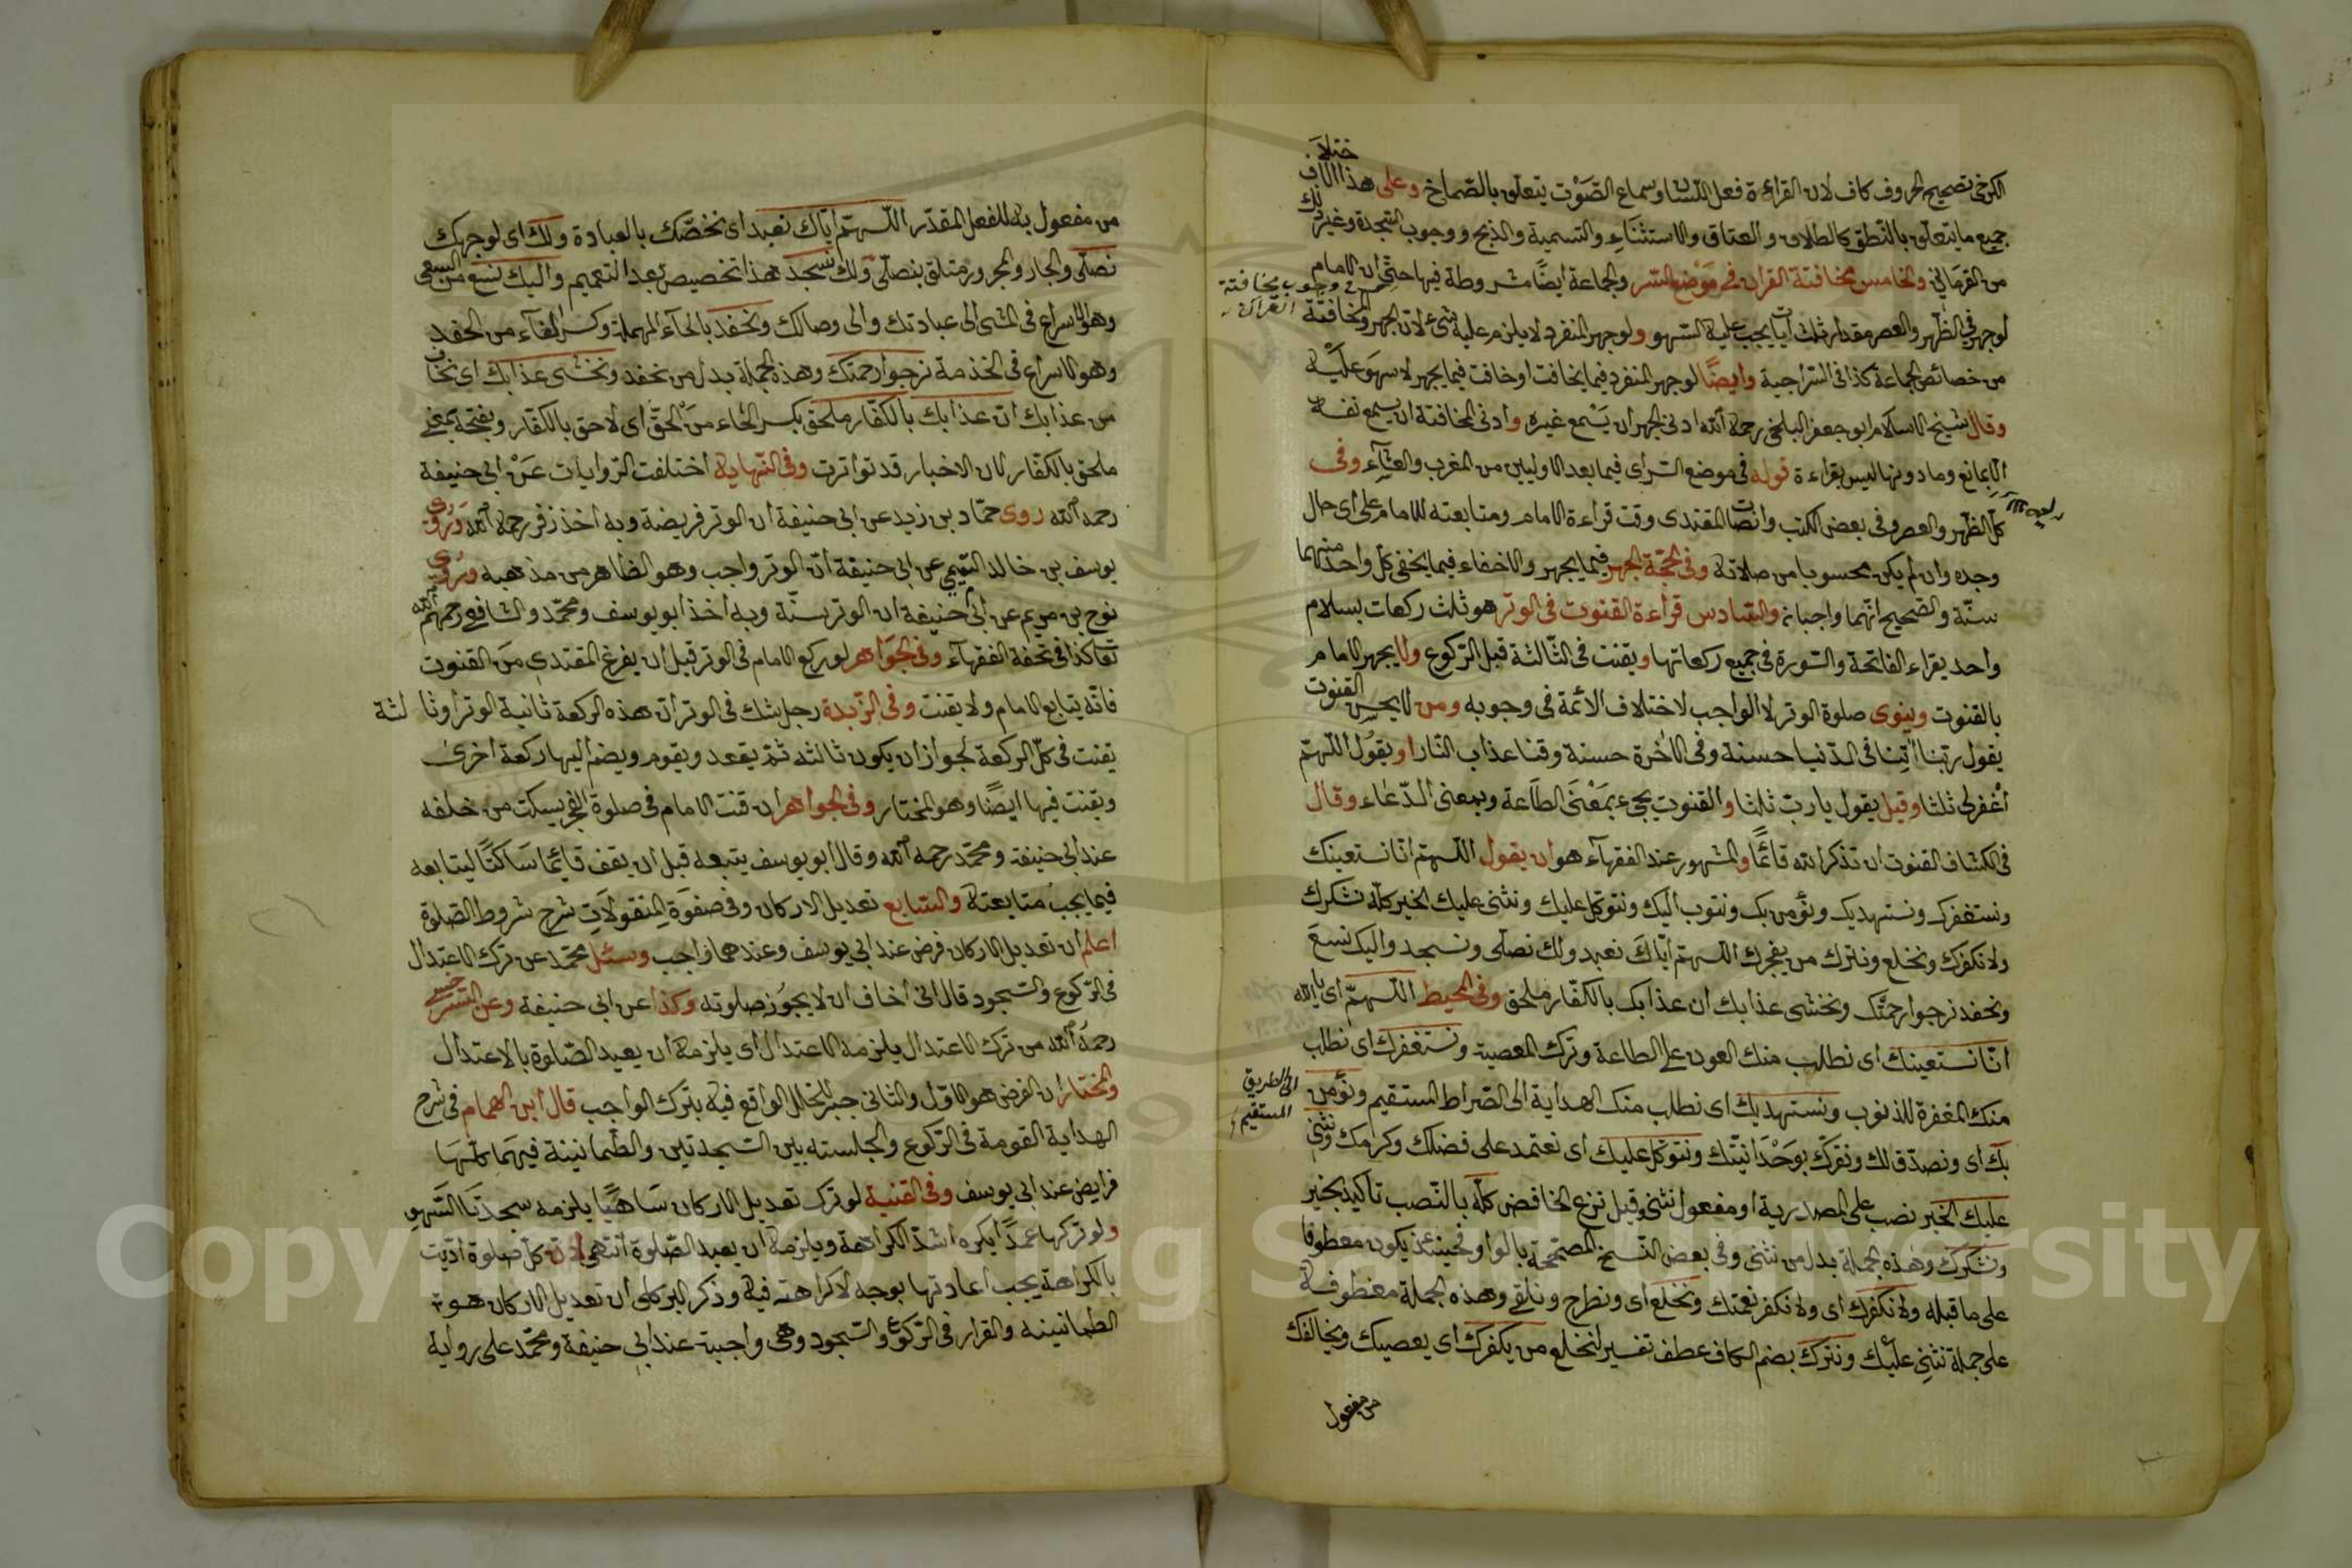 الكرخى تصحيح الحروف كاف لان القراءة فعل اللسان وسماع الصوت يتعلق بالصماخ وعلى هذا الاختلاف
جميع ما يتعلق بالنطق كالطلاق والعتاق والاستثناء والتسمية والذبح ووجوب السجدة وغير ذلك
من القرمانى والخامس مخافتة القران فى موضع السر والجماعة ايضا مشروطة فيها حتى ان الامام
فى وجوب مخافتة القراءة
لو جهر فى الظهر والعصر مقدار ثلث ايات يجب عليه السهو ولو جهر المنفرد لا يلزم عليه شئ لان الجهر والمخافتة
من خصائص الجماعة كذا فى السراجية وايضا لو جهر المنفرد فيما يخافت او خافت فيما يجهر لا سهو عليه
وقال شيخ الاسلام ابو جعفر البلخى رحمه الله ادنى الجهر ان يسمع غيره وادنى المخافتة ان يسمع نفسه
الا بمانع وما دونها ليس بقراءة قوله فى موضع السر اى فيما بعد الاوليين من المغرب والعشاء وفى
كل الظهر والعصر وفى بعض الكتب وانصات المقتدى وقت قراءة الامام ومتابعته للامام على اى حال
وجده وان لم يكن محسوبا من صلاته وفى الحجة الجهر فيما يجهر والاخفاء فيما يخفى كل واحد منهما
سنة والصحيح انهما واجبان والسادس قراءة القنوت فى الوتر هو ثلث ركعات بسلام
واحد يقراء الفاتحة والسورة فى جميع ركعاتها ويقنت فى الثالثة قبل الركوع ولا يجهر الامام
بالقنوت وينوى صلوة الوتر لا الواجب لاختلاف الائمة فى وجوبه ومن لا يحسن القنوت
يقول ربنا اتنا فى الدنيا حسنة وفى الاخرة حسنة وقنا عذاب النار او يقول اللهم
اغفر لى ثلثا وقيل يقول يا رب ثلثا والقنوت يجئ بمعنى الطاعة وبمعنى الدعاء وقال
فى الكشاف القنوت ان تذكر الله قائما والمشهور عند الفقهاء هو ان يقول اللهم انا نستعينك
ونستغفرك ونستهديك ونؤمن بك ونتوب اليك ونتوكل عليك ونثنى عليك الخير كله نشكرك
ولا نكفرك ونخلع ونترك من يفجرك اللهم اياك نعبد ولك نصلى ونسجد واليك نسعى
ونحفد نرجوا رحمتك ونخشى عذابك ان عذابك بالكفار ملحق وفى المحيط اللهم اى يا الله
انا نستعينك اى نطلب منك العون على الطاعة وترك المعصية ونستغفرك اى نطلب
منك المغفرة للذنوب ونستهديك اى نطلب منك الهداية الى الصراط المستقيم ونؤمن
الى الطريق المستقيم
بك اى ونصدق لك ونقرك بوحدانيتك ونتوكل عليك اى نعتمد على فضلك وكرمك ونثنى
عليك الخير نصب على المصدرية او مفعول نثنى وقيل نزع الخافض كله بالنصب تأكيد الخير
ونشكرك وهذه الجملة بدل من نثنى وفى بعض النسخ المصححة بالواو فحينئذ يكون معطوفا
على ما قبله ولا نكفرك اى ولا نكفر نعمتك ونخلع اى ونطرح ونلقى وهذه الجملة معطوفة
على جملة نثنى عليك ونترك بضم الكاف عطف تفسير لنخلع من يكفرك اى يعصيك ويخالفك
من مفعول
من مفعول به للفعل المقدر اللهم اياك نعبد اى نخصك بالعبادة ولك اى لوجهك
نصلى والجار والمجرور متعلق بنصلى ولك نسجد هذا تخصيص بعد التعميم واليك نسعى من السعى
وهو الاسراع فى المشى الى عبادتك والى وصالك ونحفد بالحاء المهملة وكسر الفاء من الحفد
وهو الاسراع فى الخدمة نرجوا رحمتك وهذه الجملة بدل من نحفد ونخشى عذابك اى نخاف
من عذابك ان عذابك بالكفار ملحق بكسر الحاء من الحق اى لاحق بالكفار وبفتحه بمعنى
ملحق بالكفار لان الاخبار قد تواترت وفى النهاية اختلفت الروايات عن ابى حنيفة
رحمه الله روى حماد بن زيد عن ابى حنيفة ان الوتر فريضة وبه اخذ زفر رحمه الله وروى
يوسف بن خالد التيمى عن ابى حنيفة ان الوتر واجب وهو الظاهر من مذهبه وروى
نوح بن مريم عن ابى حنيفة ان الوتر سنة وبه اخذ ابو يوسف ومحمد والشافعى رحمهم الله
تعا كذا فى تحفة الفقهاء وفى الجواهر لو ركع الامام فى الوتر قبل ان يفرغ المقتدى من القنوت
فانه يتابع الامام ولا يقنت وفى الزبدة رجل شك فى الوتر ان هذه الركعة ثانية الوتر او ثالثة
يقنت فى كل الركعة لجواز ان يكون ثالثه ثم يقعد ويقوم ويضم اليها ركعة اخرى
ويقنت فيها ايضا وهو المختار وفى الجواهر ان قنت الامام فى صلوة الفجر يسكت من خلفه
عند ابى حنيفة ومحمد رحمه الله وقال ابو يوسف يتبعه قبل ان يقف قائما ساكتا ليتابعه
فيما يجب متابعته والسابع تعديل الاركان وفى صفوة المنقولات شرح شروط الصلوة
اعلم ان تعديل الاركان فرض عند ابى يوسف وعندهما واجب وسئل محمد عن ترك الاعتدال
فى الركوع والسجود قال انى اخاف ان لا يجوز صلوته وكذا عن ابى حنيفة وعن السرخسى
رحمه الله من ترك الاعتدال يلزمه الاعتدال اى يلزمه ان يعيد الصلوة بالاعتدال
والمختار ان الفرض هو الاول والثانى جبر للخلل الواقع فيه بترك الواجب قال ابن الهمام فى شرح
الهداية القومة فى الركوع والجلسته بين السجدتين والطمانينة فيهما كلها
فرايض عند ابى يوسف وفى القنية لو ترك تعديل الاركان ساهيا يلزمه سجدتا السهو
ولو تركها عمدا يكره اشد الكراهة ويلزمه ان يعيد الصلوة انتهى لان كل صلوة اديت
بالكراهة يجب اعادتها بوجه لا كراهته فيه وذكر البركلى ان تعديل الاركان هو
الطمانينه والقرار فى الركوع والسجود وهى واجبة عند ابى حنيفة ومحمد على رواية
Copyright © King Saud University